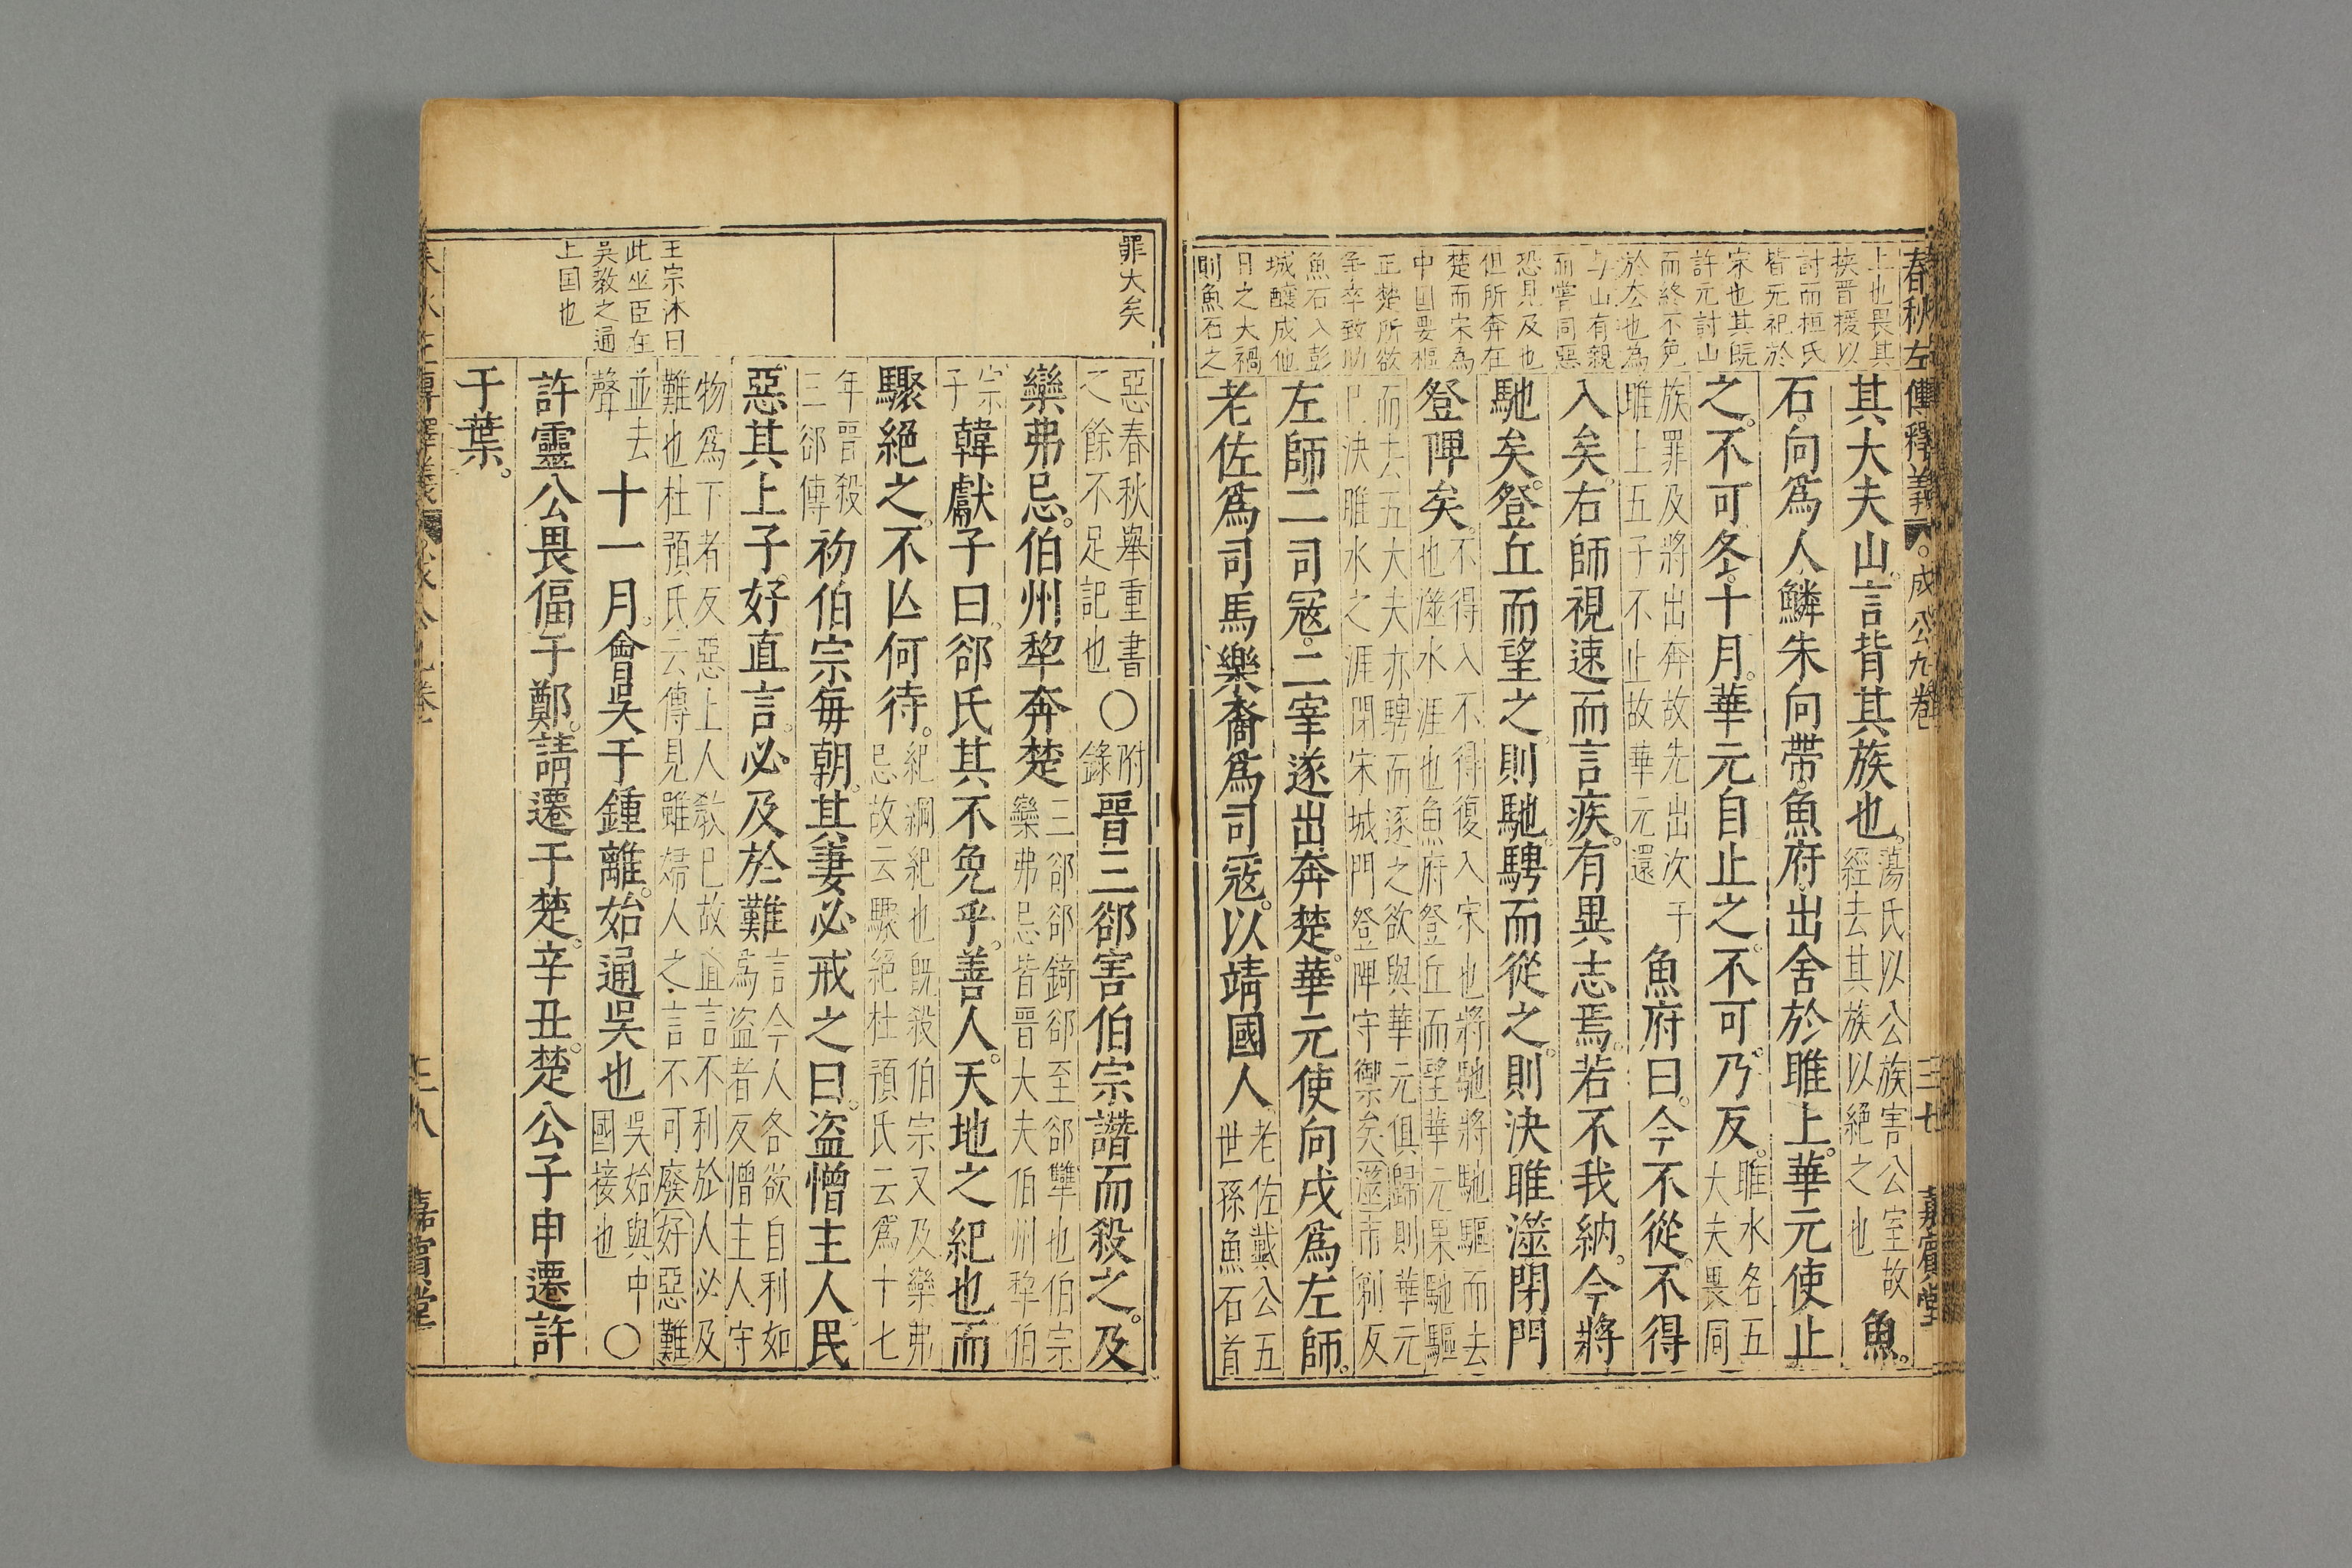 春秋左傳釋義 成公九卷 三七 嘉賓堂
上也畏其
挾晉援以
討而桓氏
皆无祀於
宋也其既
許元討山
而終不免
於公也為
与山有親
而嘗同惡
恐見及也
但所奔在
楚而宋為
中囯要樞
正楚所欲
争卒致助
魚石入彭
城釀成他
日之大禍
則魚石之
其大夫山言背其族也蕩氏以公族害公室故
經去其族以絕之也魚
石向爲人鱗朱向帶魚府出舍於睢上華元使止
之不可冬十月華元自止之不可乃反睢水名五
大夫畏同
族罪及將出奔故先出次于
睢上五子不止故華元還魚府曰今不從不得
入矣右師視速而言疾有異志焉若不我納今將
馳矣登丘而望之則馳騁而從之則決睢澨閉門
登陴矣不得入不得復入宋也將馳將馳驅而去
也澨水涯也魚府登丘而望華元果馳驅
而去五大夫亦騁而逐之欲與華元俱歸則華元
已決睢水之涯閉宋城門登陴守禦矣澨市制反
左師二司寇二宰遂出奔楚華元使向戌爲左師
老佐爲司馬樂裔爲司寇以靖國人老佐戴公五
世孫魚石首
罪大矣
王宗沐曰
此巫臣在
吳教之通
上囯也
惡春秋舉重書
之餘不足記也〇附
錄晉三郤害伯宗譖而殺之及
欒弗忌伯州犂奔楚三郤郤錡郤至郤犨也伯宗
欒弗忌皆晉大夫伯州犂伯
宗
子韓獻子曰郤氏其不免乎善人天地之紀也而
驟絕之不亾何待紀綱紀也旣殺伯宗又及欒弗
忌故云驟絕杜預氏云爲十七
年晉殺
三郤傳初伯宗每朝其妻必戒之曰盗憎主人民
惡其上子好直言必及於難言今人各欲自利如
為盗者反憎主人守
物爲下者反惡上人敎已故直言不利於人必及
難也杜預氏云傳見雖婦人之言不可廢好惡難
並去
聲十一月會吳于鍾離始通吳也吳始與中
國接也〇
許靈公畏偪于鄭請遷于楚辛丑楚公子申遷許
于葉
嘉賓堂